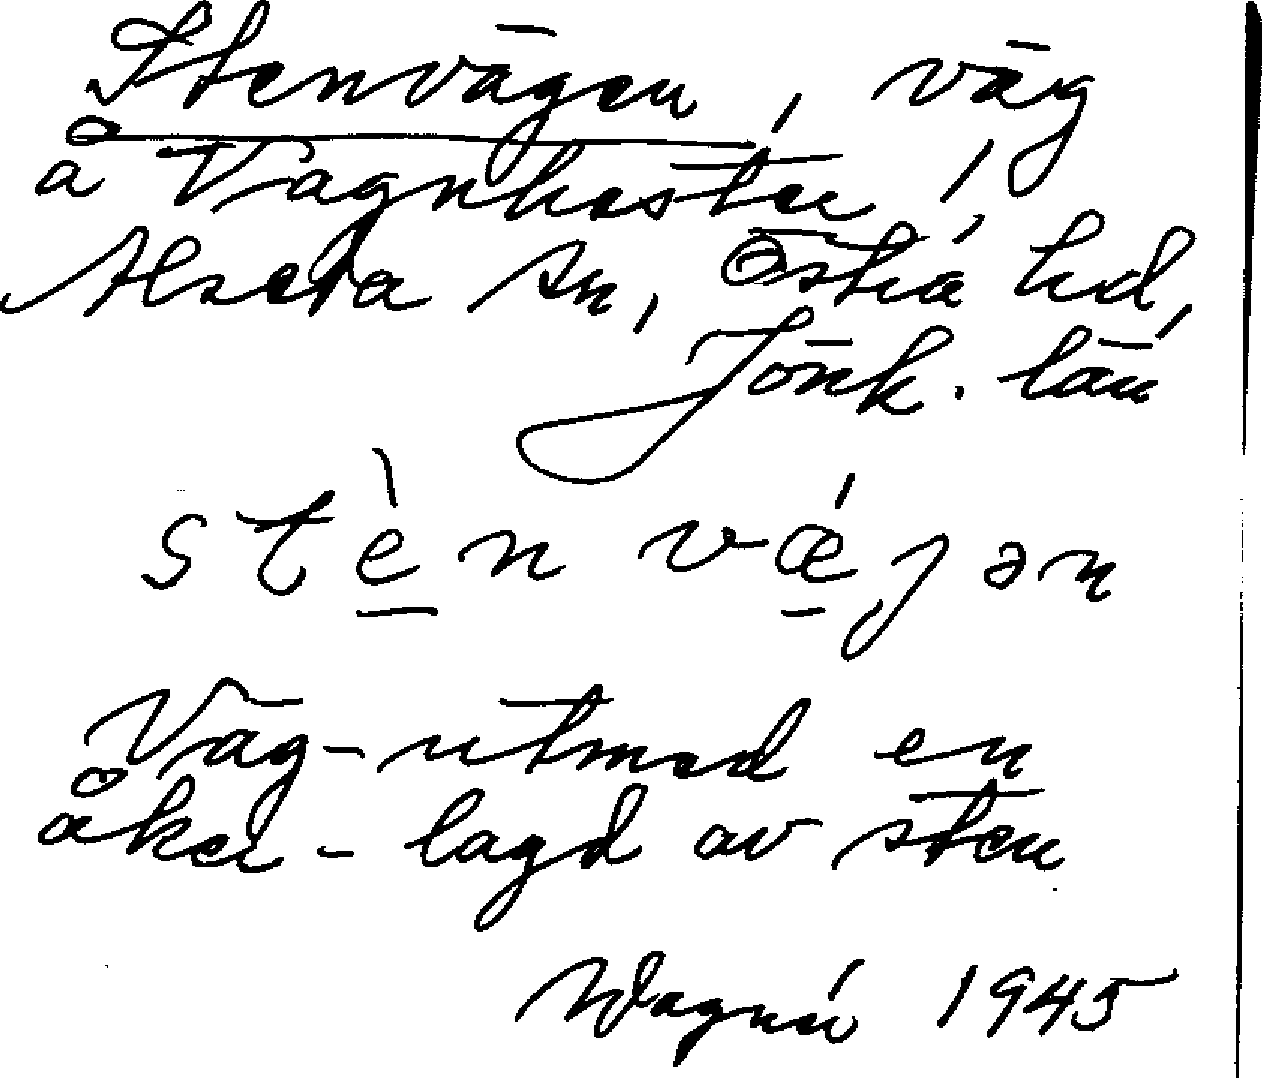 Stenvägen, väg
å Vagnhester,
Alseda sn, Östra hd,
Jönk. län
stè̱n vǽ̱jən
Väg - utmed en
åker - lagd av sten
Wagnér 1945